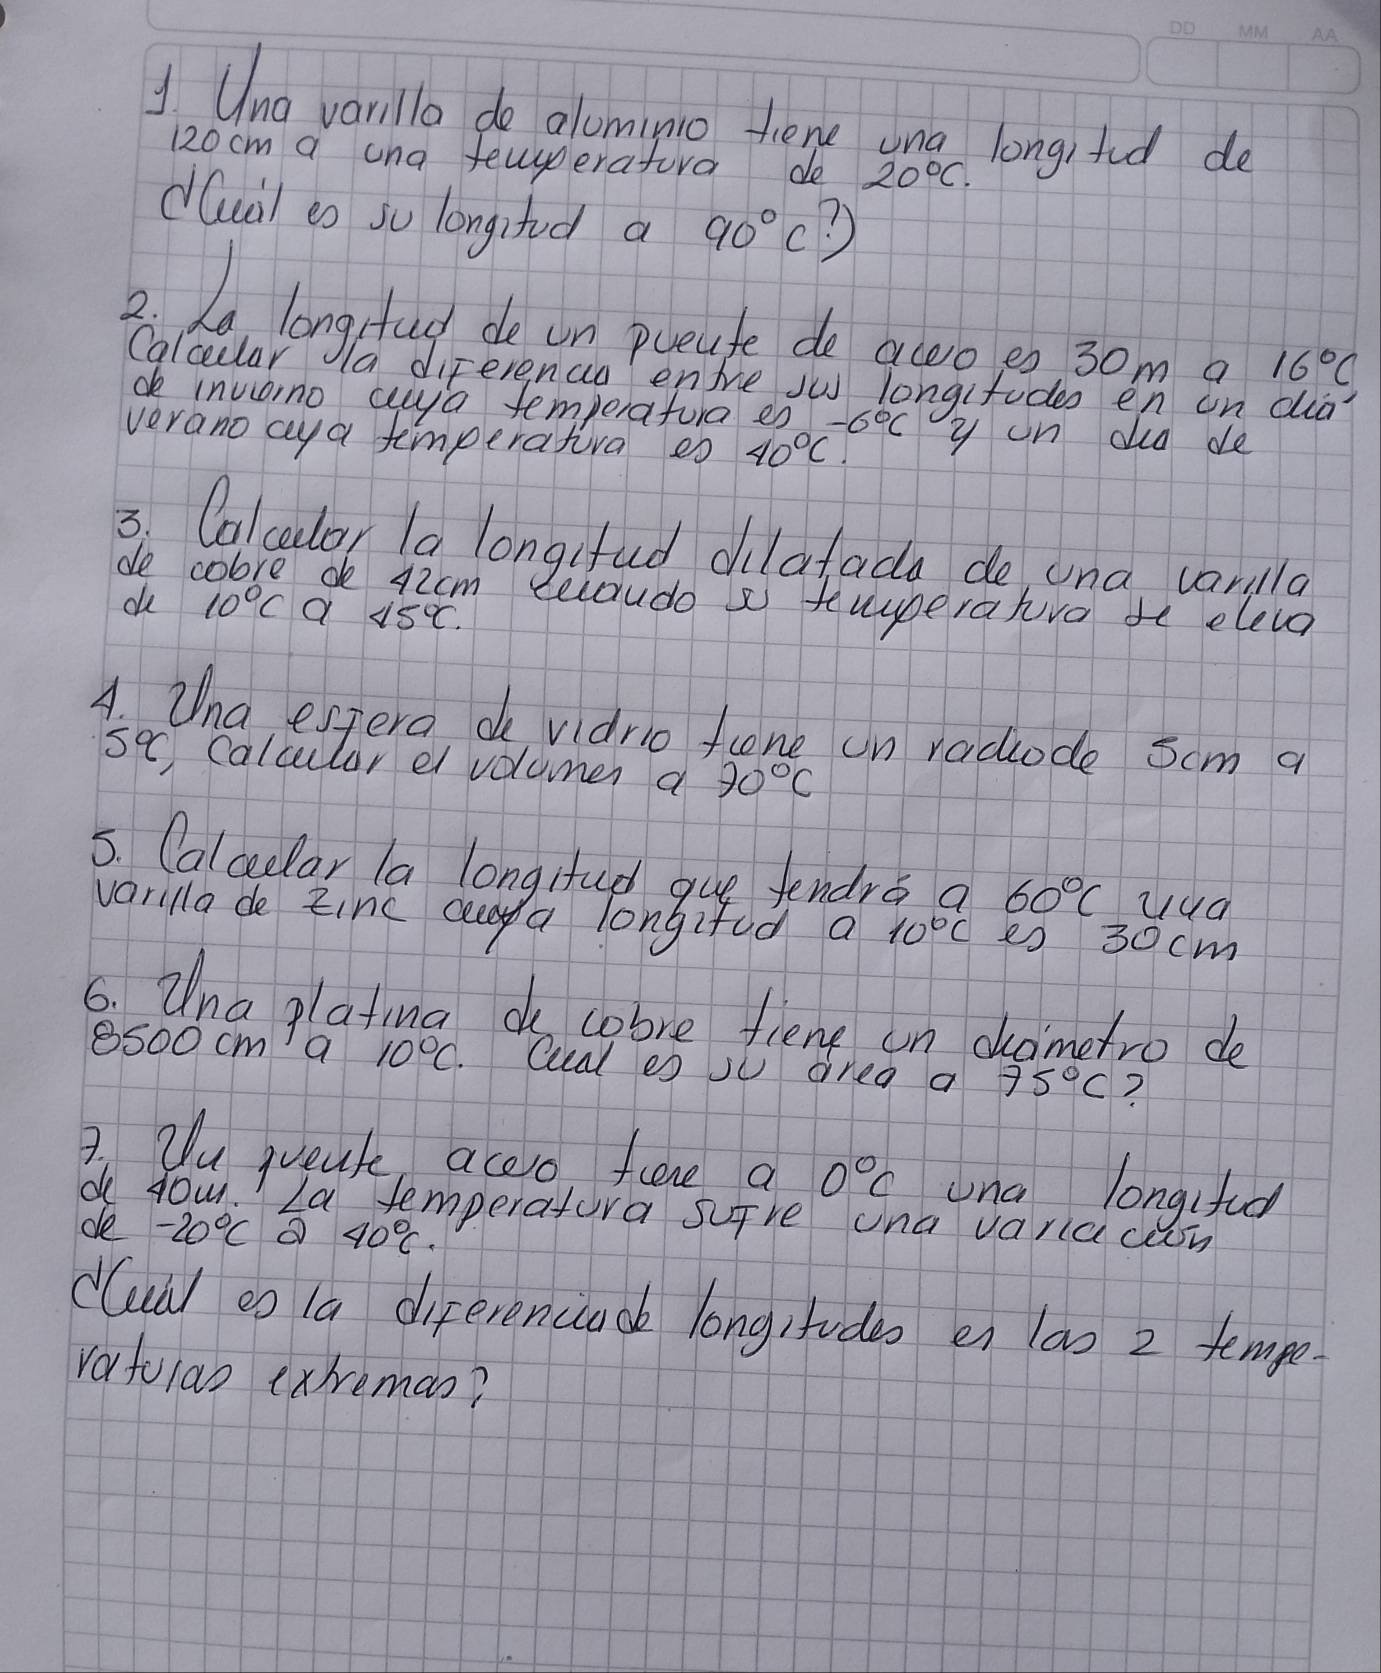 DD MM AA
1. Una varilla de aluminio tiene una longitud de
120cm a una temperatura de 20°C.
¿Cuál es su longitud a 90°C?)
2. La longitud de un puente de acero es 30m a 16°C
Calcular la diferencia entre sus longitudes en un dia
de invierno cuya temperatura es -6°C y un dia de
verano cuya temperatura es 40°C.
3. Calcular la longitud dilatada de una varilla
de cobre de 42cm cuando su temperatura se eleva
de 10°C a 45°C.
4. Una esfera de vidrio tiene un radio de 5cm a
5°C, Calcular el volumen a 70°C
5. Calcular la longitud que tendrá a 60°C una
varilla de zinc cuya longitud a 10°C es 30cm
6. Una platina de cobre tiene un diámetro de
8500cm a 10°C. Cual es su área a 75°C?
7. Un puente acero tiene a 0°C una longitud
de 40m. La temperatura sufre una variación
de -20°C a 40°C.
¿Cuál es la diferencia de longitudes en las 2 tempe-
raturas extremas?